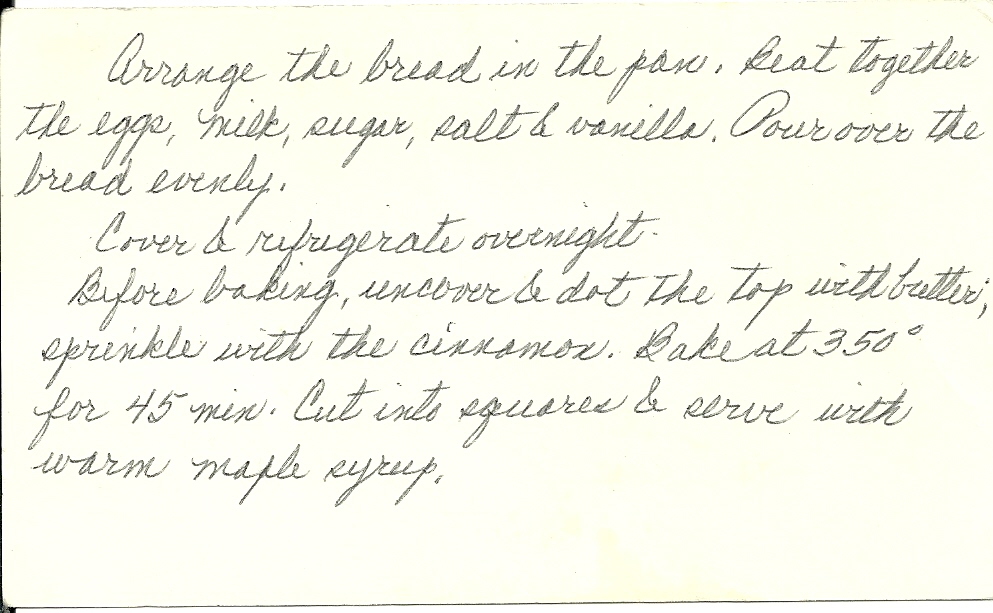 Arrange the bread in the pan. Beat together
the eggs, milk, sugar, salt & vanilla. Pour over the
bread evenly.
Cover & refrigerate overnight.
Before baking, uncover & dot the top with butter;
sprinkle with the cinnamon. Bake at 350°
for 45 min. Cut into squares & serve with
warm maple syrup.